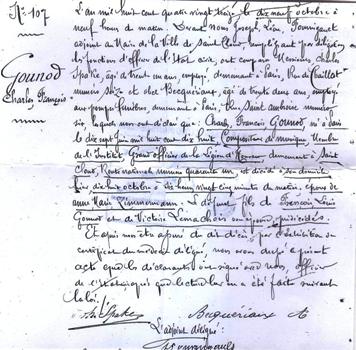 N° 107
Gounod
Charles François
L'an mil huit cent quatre vingt treize le dix neuf octobre à
neuf heures du matin. Devant Nous Joseph, Léon, Tournigan
adjoint au Maire de la Ville de Saint Cloud, remplissant par délégation
les fonctions d'officier de l'état civil, ont comparu Messieurs Charles
âgé de trente un ans, employé, demeurant à Paris, Rue de
numéro seize et Becquériaux, âgé de trente deux ans, employé
aux pompes funèbres, demeurant à Paris, Rue Saint Ambroise numéro
six, lesquels nous ont déclaré que : Charles François Gounod, né à Paris
le dix sept juin mil huit cent dix huit Compositeur de musique, Membre
de l'Institut, Grand officier de la Légion d'Honneur demeurant à Saint
Cloud, Route nationale numéro quarante un est décédé en son domicile
hier dix huit octobre à six heures vingt cinq du matin, époux de
Anne Marie Zimmermann. Le défunt fils de François Louis
Gounod et de Victoire Lemachois son épouse, prédécédés.
Et après nous être assuré du décès, par l'exhibition du
certificat du médecin délégué, nous avons dressé le présent
acte que les déclarants ont signé avec nous, officier
de l'état civil après que lecture leur en a été faite suivant
la loi.
Becqueriaux
L'adjoint délégué :